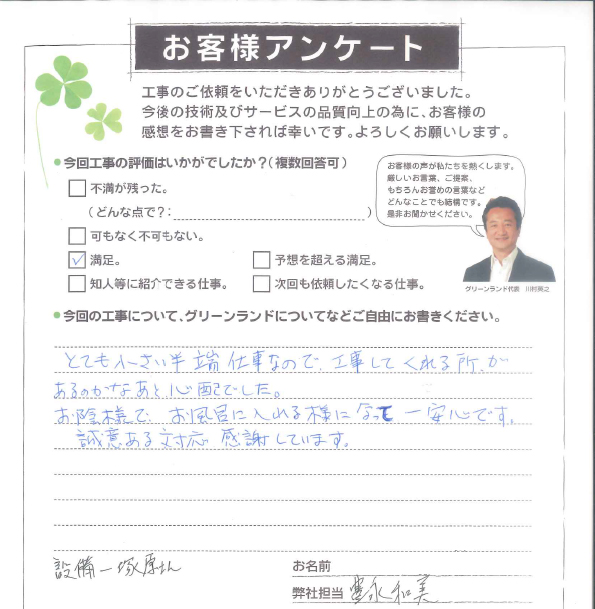 お客様アンケート
工事のご依頼をいただきありがとうございました。
今後の技術及びサービスの品質向上の為に、お客様の
感想をお書き下されば幸いです。よろしくお願いします。
今回工事の評価はいかがでしたか?(複数回答可)
不満が残った。
(どんな点で?: )
可もなく不可もない。
満足。
予想を超える満足。
知人等に紹介できる仕事。
次回も依頼したくなる仕事。
お客様の声が私たちを熱くします。
厳しいお言葉、ご提案、
もちろんお誉めの言葉など
どんなことでも結構です。
是非お聞かせください。
グリーンランド代表 川村英之
今回の工事について、グリーンランドについてなどご自由にお書きください。
とても小さい半端仕事なので、工事してくれる所が
あるのかなあと心配でした。
お陰様で、お風呂に入れる様になって一安心です。
誠意ある対応 感謝しています。
設備一塚原さん
お名前
弊社担当 永和美